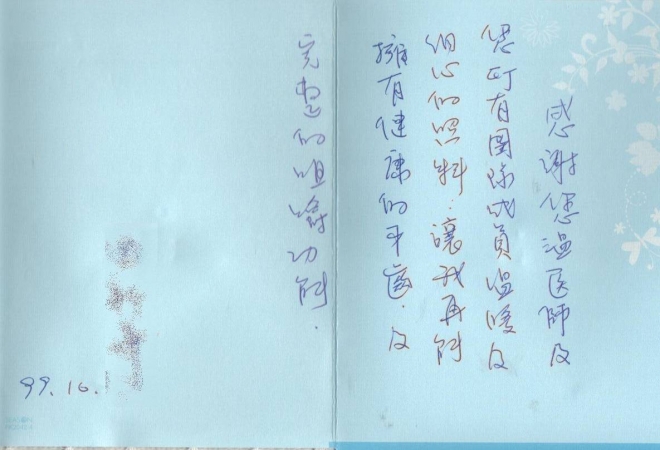 感謝您溫医師及
您所有團隊成員溫暖及
細心的照料.讓我再能
擁有健康的牙齒.及
完整的咀嚼功能.
99.10.